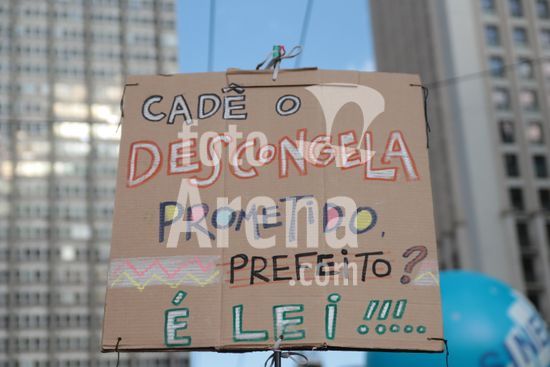 CADÊ O
DESCONGELA
PROMETIDO,
PREFEITO?
É LEI!!!...
foto
Arena
.com
SINE